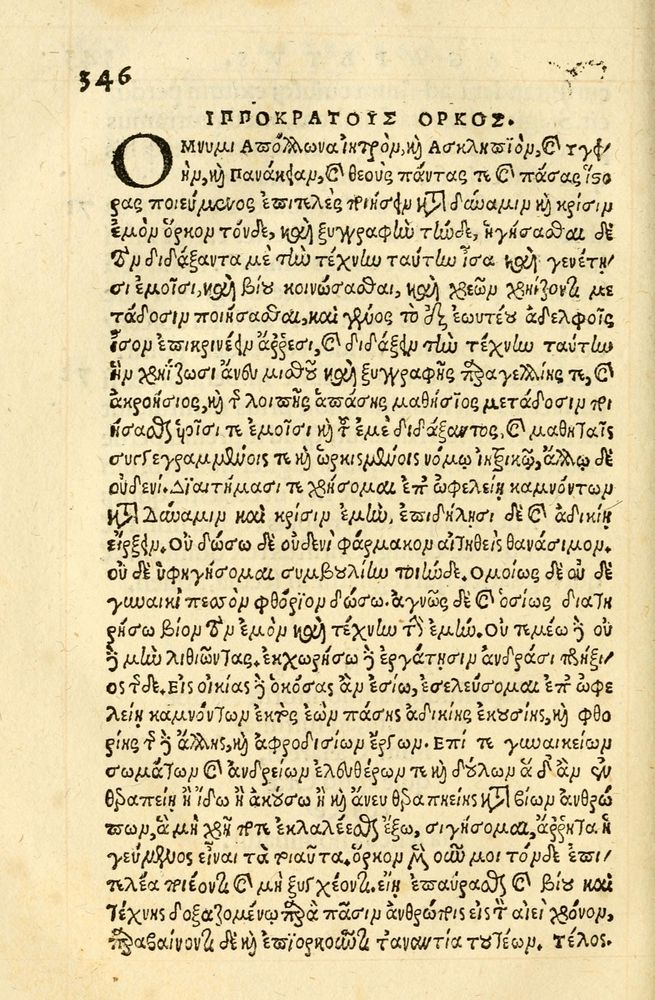 346
ΙΠΠΟΚΡΑΤΟΥΣ ΟΡΚΟΣ.
ΟΜΝΥΜΙ Απόλλωνα ἰητρὸν, καὶ Ασκληπϊὸν, καὶ Υγεί-
ην, καὶ Πανάκειαν, καὶ θεοὺς πάντας τε καὶ πάσας ἵσο
ρας ποιεύμενος ἐπιτελὲς ποιήσειν κατὰ δύναμιν καὶ κρίσιν
ἐμὸν ὅρκον τόνδε, καὶ ξυγγραφὴν τήνδε, ἡγήσασθαι δὲ
τὸν διδάξαντα μὲ τὴν τέχνην ταύτην ἶσα καὶ γενέτῃ-
σι ἐμοῖσι, καὶ βίου κοινώσασθαι, καὶ χρεῶν χρηίζοντι με
τάδοσιν ποιήσασθαι, καὶ γένος τὸ ἐξ ἑωυτέου ἀδελφοῖς
ἶσον ἐπικρινέειν ἄρρεσι, καὶ διδάξειν τὴν τέχνην ταύτην
ἢν χρηίζωσι ἄνευ μισθοῦ καὶ ξυγγραφῆς παραγγελίης τε, καὶ
ἀκροήσιος, καὶ τῆς λοιπῆς ἁπάσης μαθήσῖος μετάδοσιν ποι
ήσασθαι υἱοῖσι τε ἐμοῖσι καὶ τοῦ ἐμὲ διδάξαντος, καὶ μαθηταῖς
συγγεγραμμένοις τε καὶ ὡρκισμένοις νόμῳ ἰητρικῷ, ἄλλῳ δὲ
οὐδενί. Δϊαιτήμασι τε χρήσομαι ἐπ' ὠφελείῃ καμνόντων
κατὰ δύναμιν καὶ κρίσιν ἐμὴν, ἐπὶ δηλήσι δὲ καὶ ἀδικίῃ
εἴρξειν. Οὐ δώσω δὲ οὐδενὶ φάρμακον αἰτηθεὶς θανάσιμον.
οὐ δὲ ὑφηγήσομαι συμβουλίην τοιήνδε. Ομοίως δὲ οὐ δὲ
γυναικὶ πεσσὸν φθόριον δώσω. ἁγνῶς δὲ καὶ ὁσίως διατη
ρήσω βίον τὸν ἐμὸν καὶ τέχνην τὴν ἐμήν. Οὐ τεμέω δὲ οὐ
δὲ μὴν λιθιῶντας. ἐκχωρήσω δὲ ἐργάτῃσιν ἀνδράσι πρήξι-
ος τῆσδε. Εἰς οἰκίας δὲ ὁκόσας ἂν ἐσίω, ἐσελεύσομαι ἐπ' ὠφε
λείῃ καμνόντων ἐκτὸς ἐὼν πάσης ἀδικίης ἑκουσίης, καὶ φθο
ρίης τῆς δὲ ἄλλης, καὶ ἀφροδισίων ἔργων. Επί τε γυναικείων
σωμάτων καὶ ἀνδρείων ἐλευθέρων τε καὶ δούλων ἃ δ' ἂν ἐν
θραπείῃ ἢ ἴδω ἢ ἀκούσω ἢ καὶ ἄνευ θραπηείης κατὰ βίων ἀνθρώ
πων, ἃ μὴ χρή ποτε ἐκλαλέεσθαι ἔξω, σιγήσομαι, ἄρρητα ἡ
γεύμενος εἶναι τὰ τοιαῦτα. ὅρκον μὲν οὖν μοι τόνδε ἐπι-
τελέα ποιέοντι καὶ μὴ ξυγχέοντι. εἴη ἐπαύρασθαι καὶ βίου καὶ
τέχνης δοξαζομένῳ παρὰ πᾶσιν ἀνθρώποις εἰς τὸν αἰεὶ χρόνον,
παραβαίνοντι δὲ καὶ ἐπϊορκοῦντι τἀναντία τουτέων. τέλος.